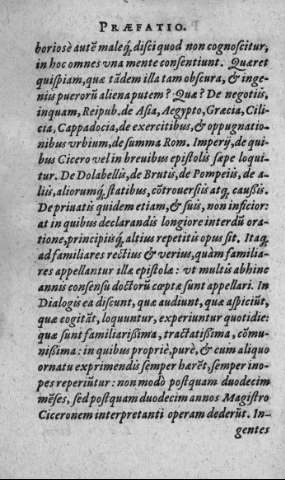 PRÆFATIO.
boriosè autē maleq́; disci quod non cognoscitur,
in hoc omnes vna mente consentiunt. Quæret
quispiam, quæ tādem illa tam obscura, & inge-
niis puerorū aliena putem? Quæ? De negotiis,
inquam, Reipub. de Asia, Aegypto, Græcia, Cili-
cia, Cappadocia, de exercitibus, & oppugnatio-
nibus vrbium, de summa Rom. Imperij, de qui-
bus Cicero vel in breuibus epistolis sæpe loqui-
tur. De Dolabellis, de Brutis, de Pompeiis, de a-
liis, aliorumq́; statibus, cōtrouersiis atq; caussis.
De priuatis quidem etiam, & suis, non inficior:
at in quibus declarandis longiore interdū orā-
tione, principiisq́; altius repetitis opus sit. Itaq;
ad familiares rectius & verius, quàm familia-
res appellantur illæ epistolæ: vt multis abhinc
annis consensu doctorū cœptæ sunt appellari. In
Dialogis ea discunt, quæ audiunt, quæ aspiciūt,
quæ cogitāt, loquuntur, experiuntur quotidie:
quæ sunt familiarissima, tractatissima, cōmu-
nissima: in quibus propriè, purè, & cum aliquo
ornatu exprimendis semper harēt, semper ino-
pes reperiūtur: non modò postquam duodecim
mēses, sed postquam duodecim annos Magistro
Ciceronem interpretanti operam dederūt. In-
gentes